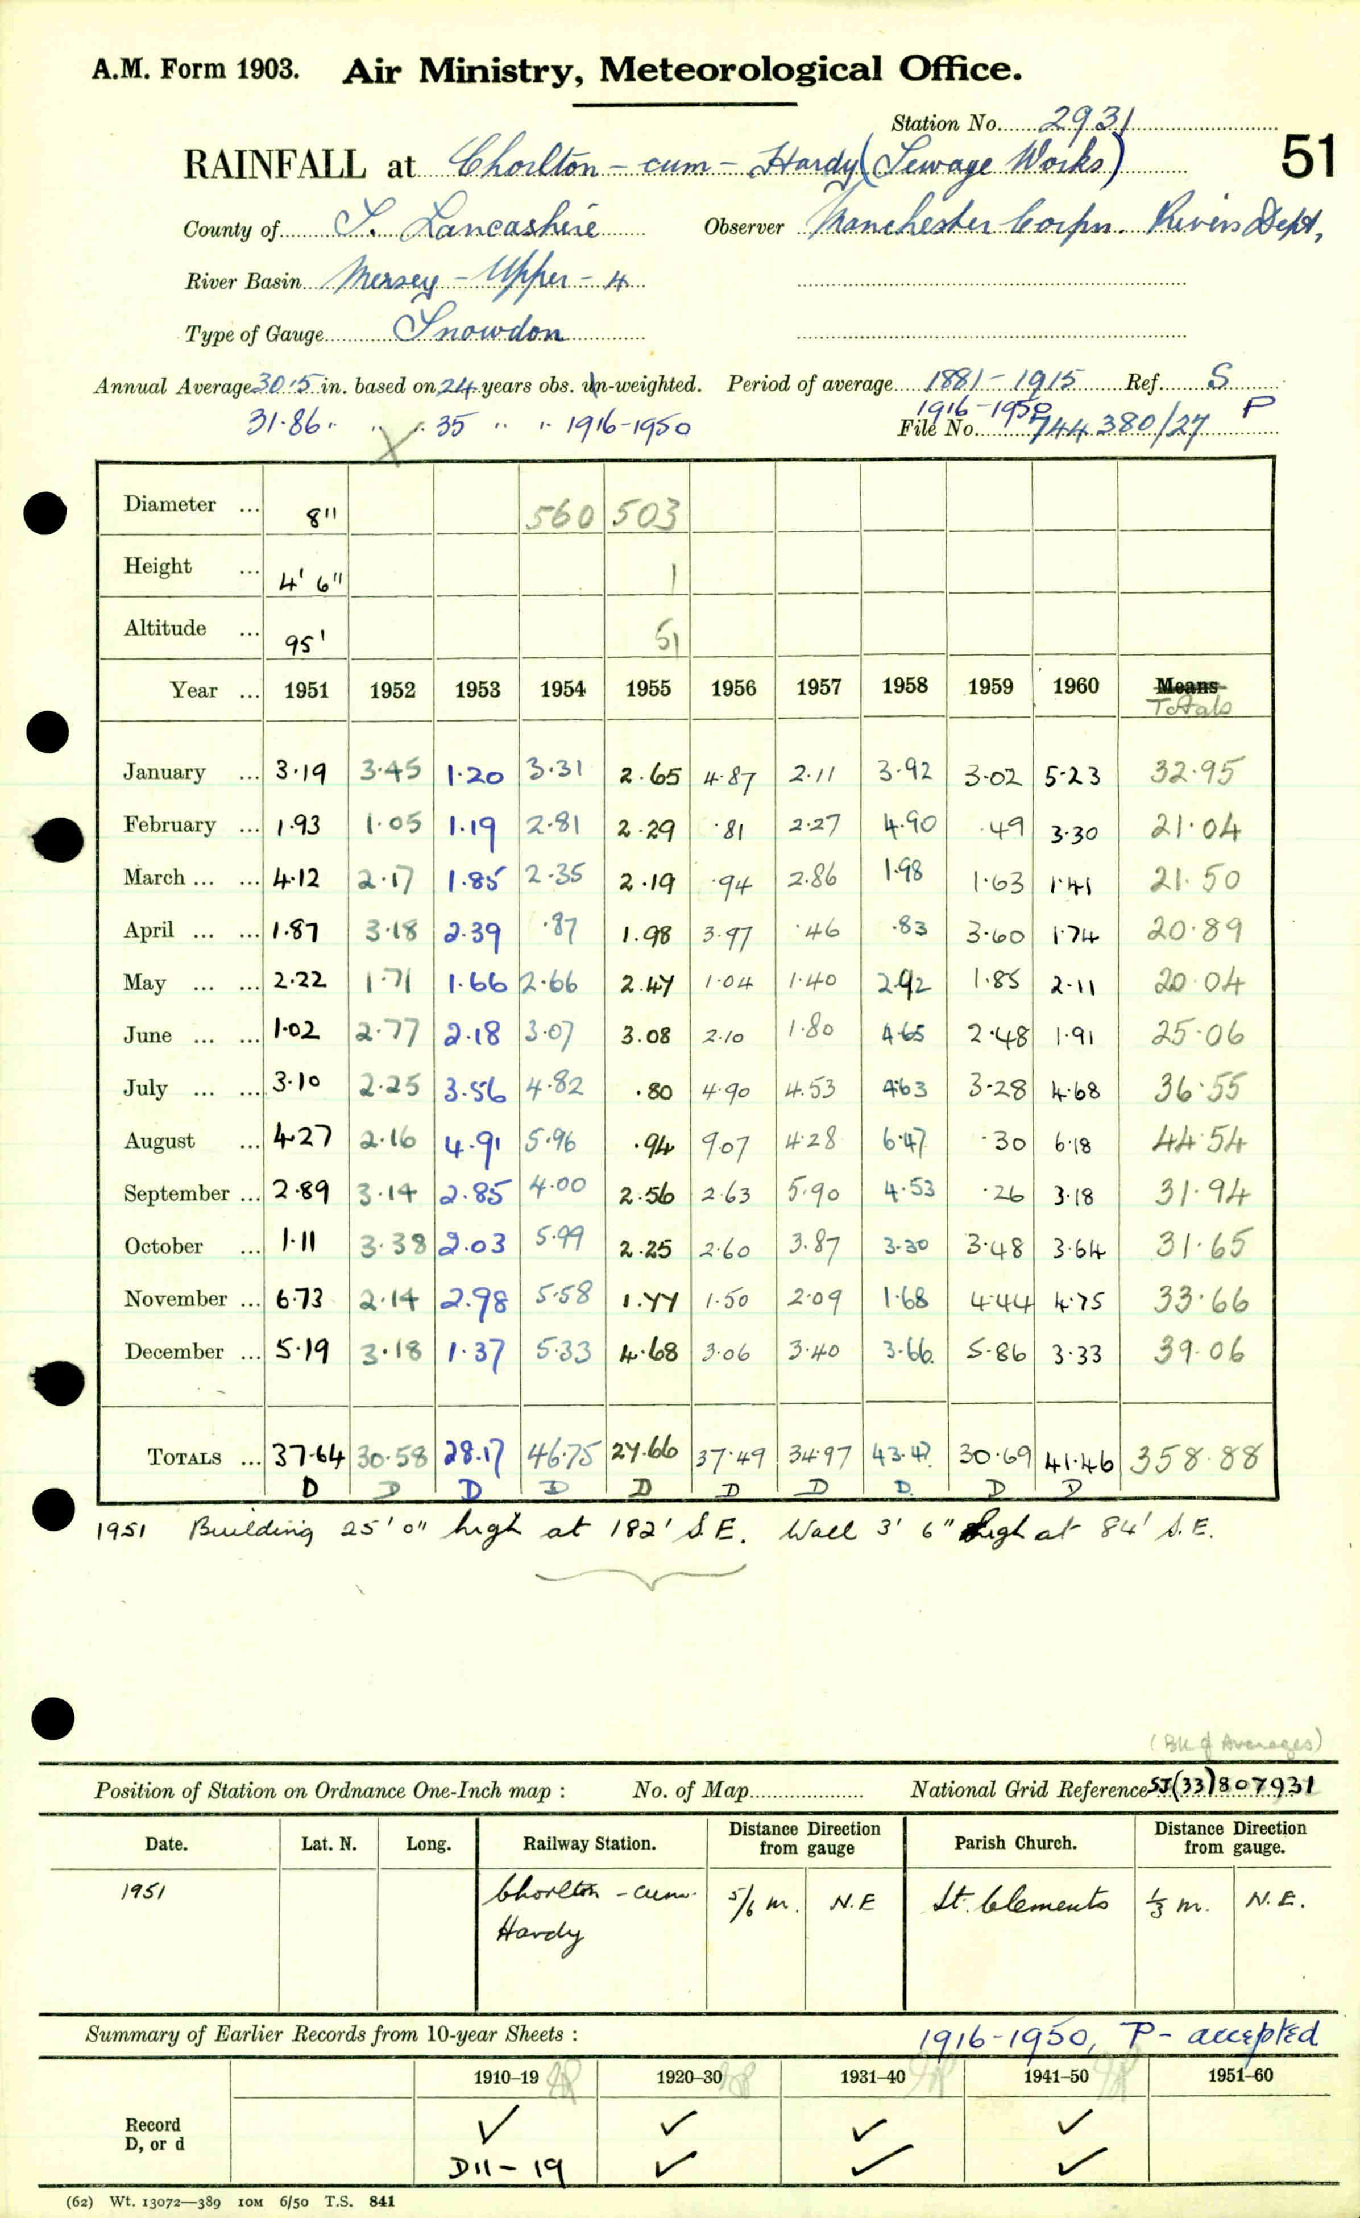 A.M. Form 1903. Air Ministry, Meteorological Office.
Station No. 2931
51
RAINFALL at Chorlton - cum - Hardy (Sewage Works)
County of S. Lancashire Observer Manchester Corpn. Rivers Dept,
River Basin Mersey - Upper - 4
Type of Gauge Snowdon
Annual Average 30.5 in. based on 24 years obs. un-weighted. Period of average 1881-1915 Ref. S
31.86 " " " 35 " " 1916-1950 1916-1950 P
File No. 744380/27
Diameter ... 8" 560 503
Height ... 4' 6" 1
Altitude ... 95' 51
Year ... 1951 1952 1953 1954 1955 1956 1957 1958 1959 1960 Means
Totals
January ... 3.19 3.45 1.20 3.31 2.65 4.87 2.11 3.92 3.02 5.23 32.95
February ... 1.93 1.05 1.19 2.81 2.29 .81 2.27 4.90 .49 3.30 21.04
March ... ... 4.12 2.17 1.85 2.35 2.19 .94 2.86 1.98 1.63 1.41 21.50
April ... ... 1.87 3.18 2.39 .87 1.98 3.97 .46 .83 3.60 1.74 20.89
May ... ... 2.22 1.71 1.66 2.66 2.47 1.04 1.40 2.92 1.85 2.11 20.04
June ... ... 1.02 2.77 2.18 3.07 3.08 2.10 1.80 4.65 2.48 1.91 25.06
July ... ... 3.10 2.25 3.56 4.82 .80 4.90 4.53 4.63 3.28 4.68 36.55
August ... 4.27 2.16 4.91 5.96 .94 9.07 4.28 6.47 .30 6.18 44.54
September ... 2.89 3.14 2.85 4.00 2.56 2.63 5.90 4.53 .26 3.18 31.94
October ... 1.11 3.38 2.03 5.99 2.25 2.60 3.87 3.30 3.48 3.64 31.65
November ... 6.73 2.14 2.98 5.58 1.77 1.50 2.09 1.68 4.44 4.75 33.66
December ... 5.19 3.18 1.37 5.33 4.68 3.06 3.40 3.66 5.86 3.33 39.06
TOTALS ... 37.64 30.58 28.17 46.75 27.66 37.49 34.97 43.47 30.69 41.46 358.88
D D D D D D D D D D
1951 Building 25' 0" high at 182' S.E. Wall 3' 6" high at 84' S.E.
(Bk of Averages)
Position of Station on Ordnance One-Inch map : No. of Map National Grid Reference SJ(33)807931
Date. Lat. N. Long. Railway Station. Distance from Direction gauge Parish Church. Distance from Direction gauge.
1951 Chorlton - cum - Hardy 5/6 m. N.E St. Clements 1/3 m. N.E.
Summary of Earlier Records from 10-year Sheets : 1916-1950, P - accepted
1910-19 1920-30 1931-40 1941-50 1951-60
Record ✓ ✓ ✓ ✓
D, or d
D11-19 ✓ ✓ ✓
(62) Wt. 13072—389 10M 6/50 T.S. 841